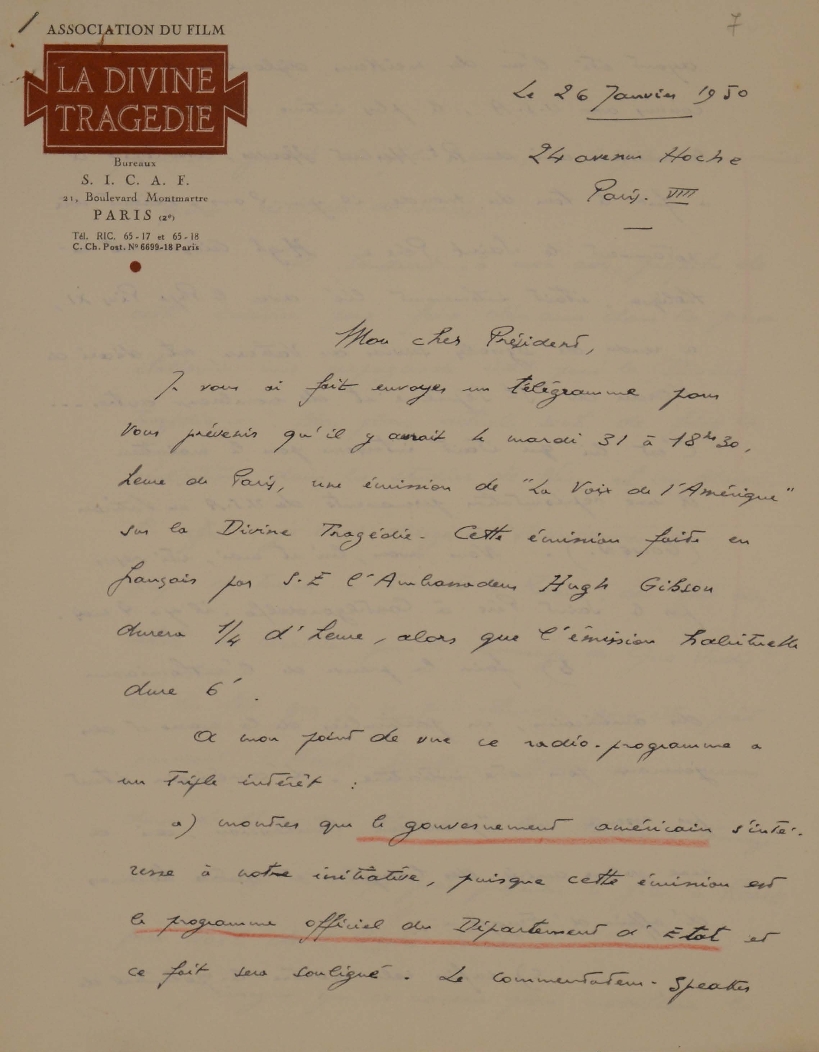 7
ASSOCIATION DU FILM
LA DIVINE
TRAGEDIE
Bureaux
S. I. C. A. F.
21, Boulevard Montmartre
PARIS (2e)
Tél. RIC. 65-17 et 65-18
C. Ch. Post. No 6699-18 Paris
Le 26 Janvier 1950
24 avenue Hoche
Paris. VIII
Mon cher Président,
Je vous ai fait envoyer un télégramme pour
vous prévenir qu'il y aurait le mardi 31 à 18 hrs 30,
heure de Paris, une émission de "La Voix de l'Amérique"
sur la Divine Tragédie. Cette émission faite en
français par S.E l'Ambassadeur Hugh Gibson
durera 1/4 d'heure, alors que l'émission habituelle
dure 6'.
A mon point de vue ce radio-programme a
un triple intérêt :
a) montrer que le gouvernement américain s'inté-
resse à notre initiative, puisque cette émission est
le programme officiel du Département d'Etat et
ce fait sera souligné. Le commentateur-speaker